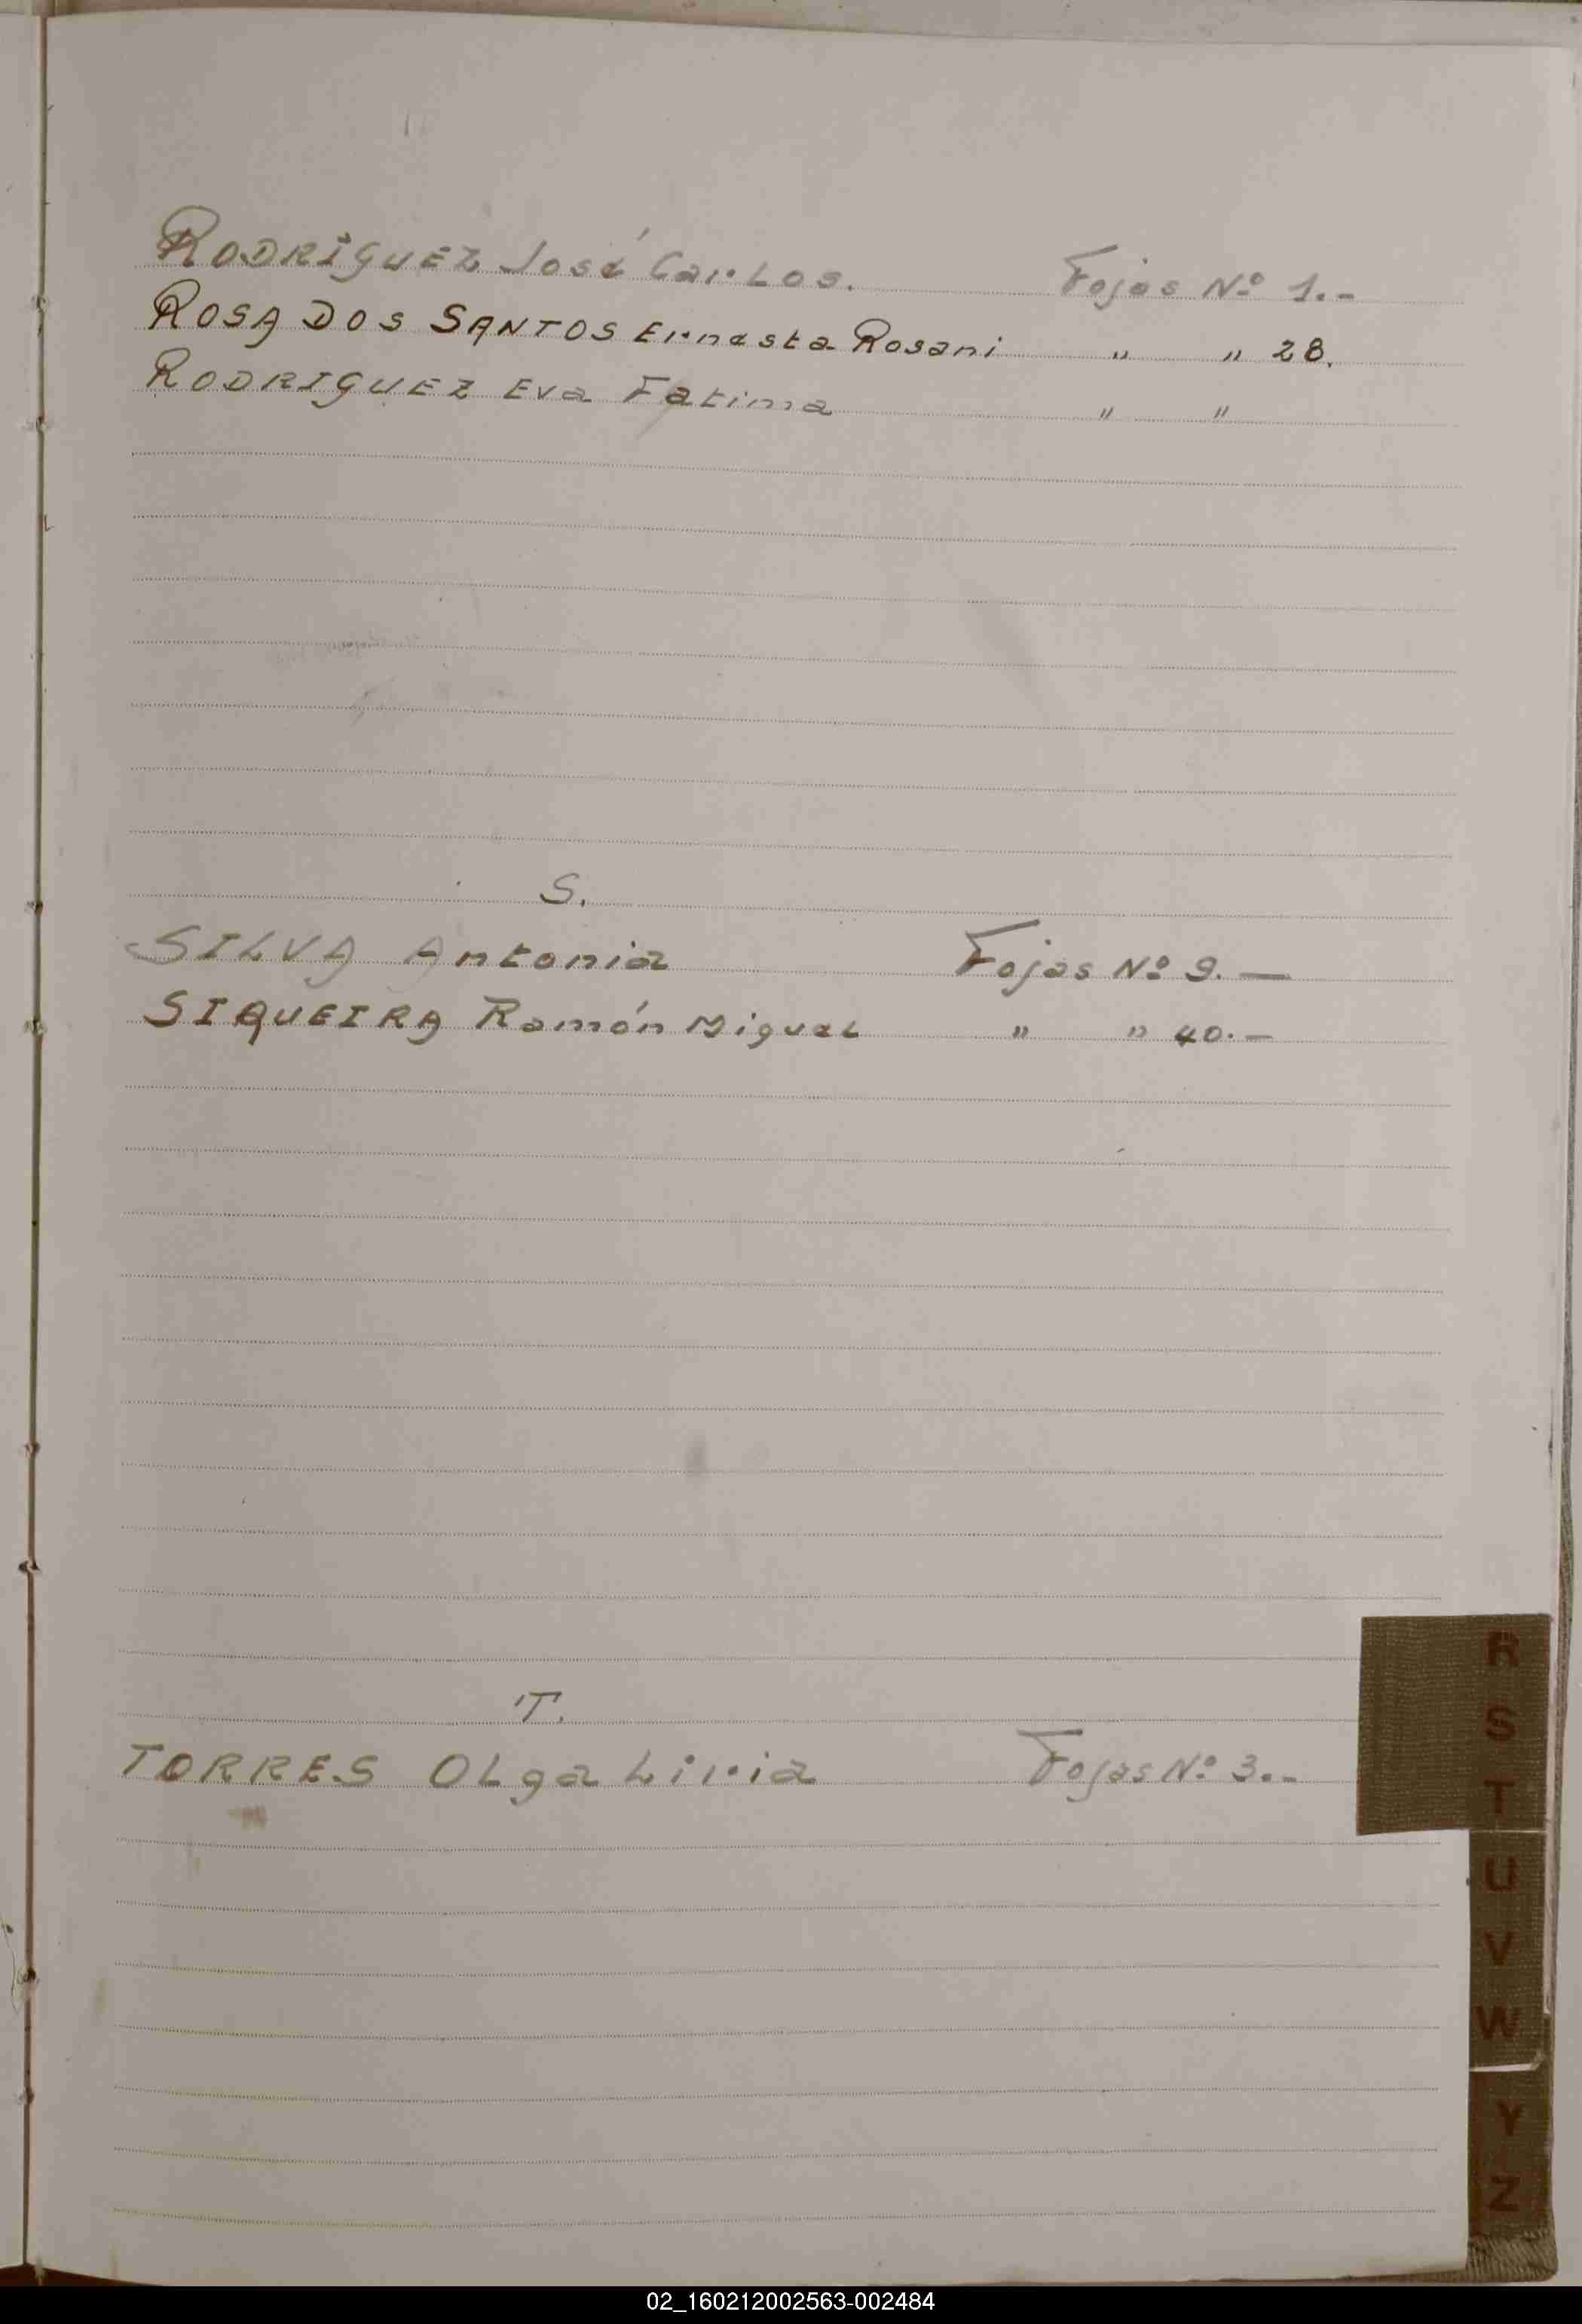 RODRIGUEZ José Carlos. Fojas Nº 1.-
ROSA DOS SANTOS Ernesta Rosani " " 28.
RODRIGUEZ Eva Fatima " "
S.
SILVA Antonia Fojas Nº 9.—
SIQUEIRA Ramón Miguel " " 40.—
T.
TORRES Olga Liria Fojas Nº 3.-
R
S
T
U
V
W
Y
Z
02_160212002563-002484